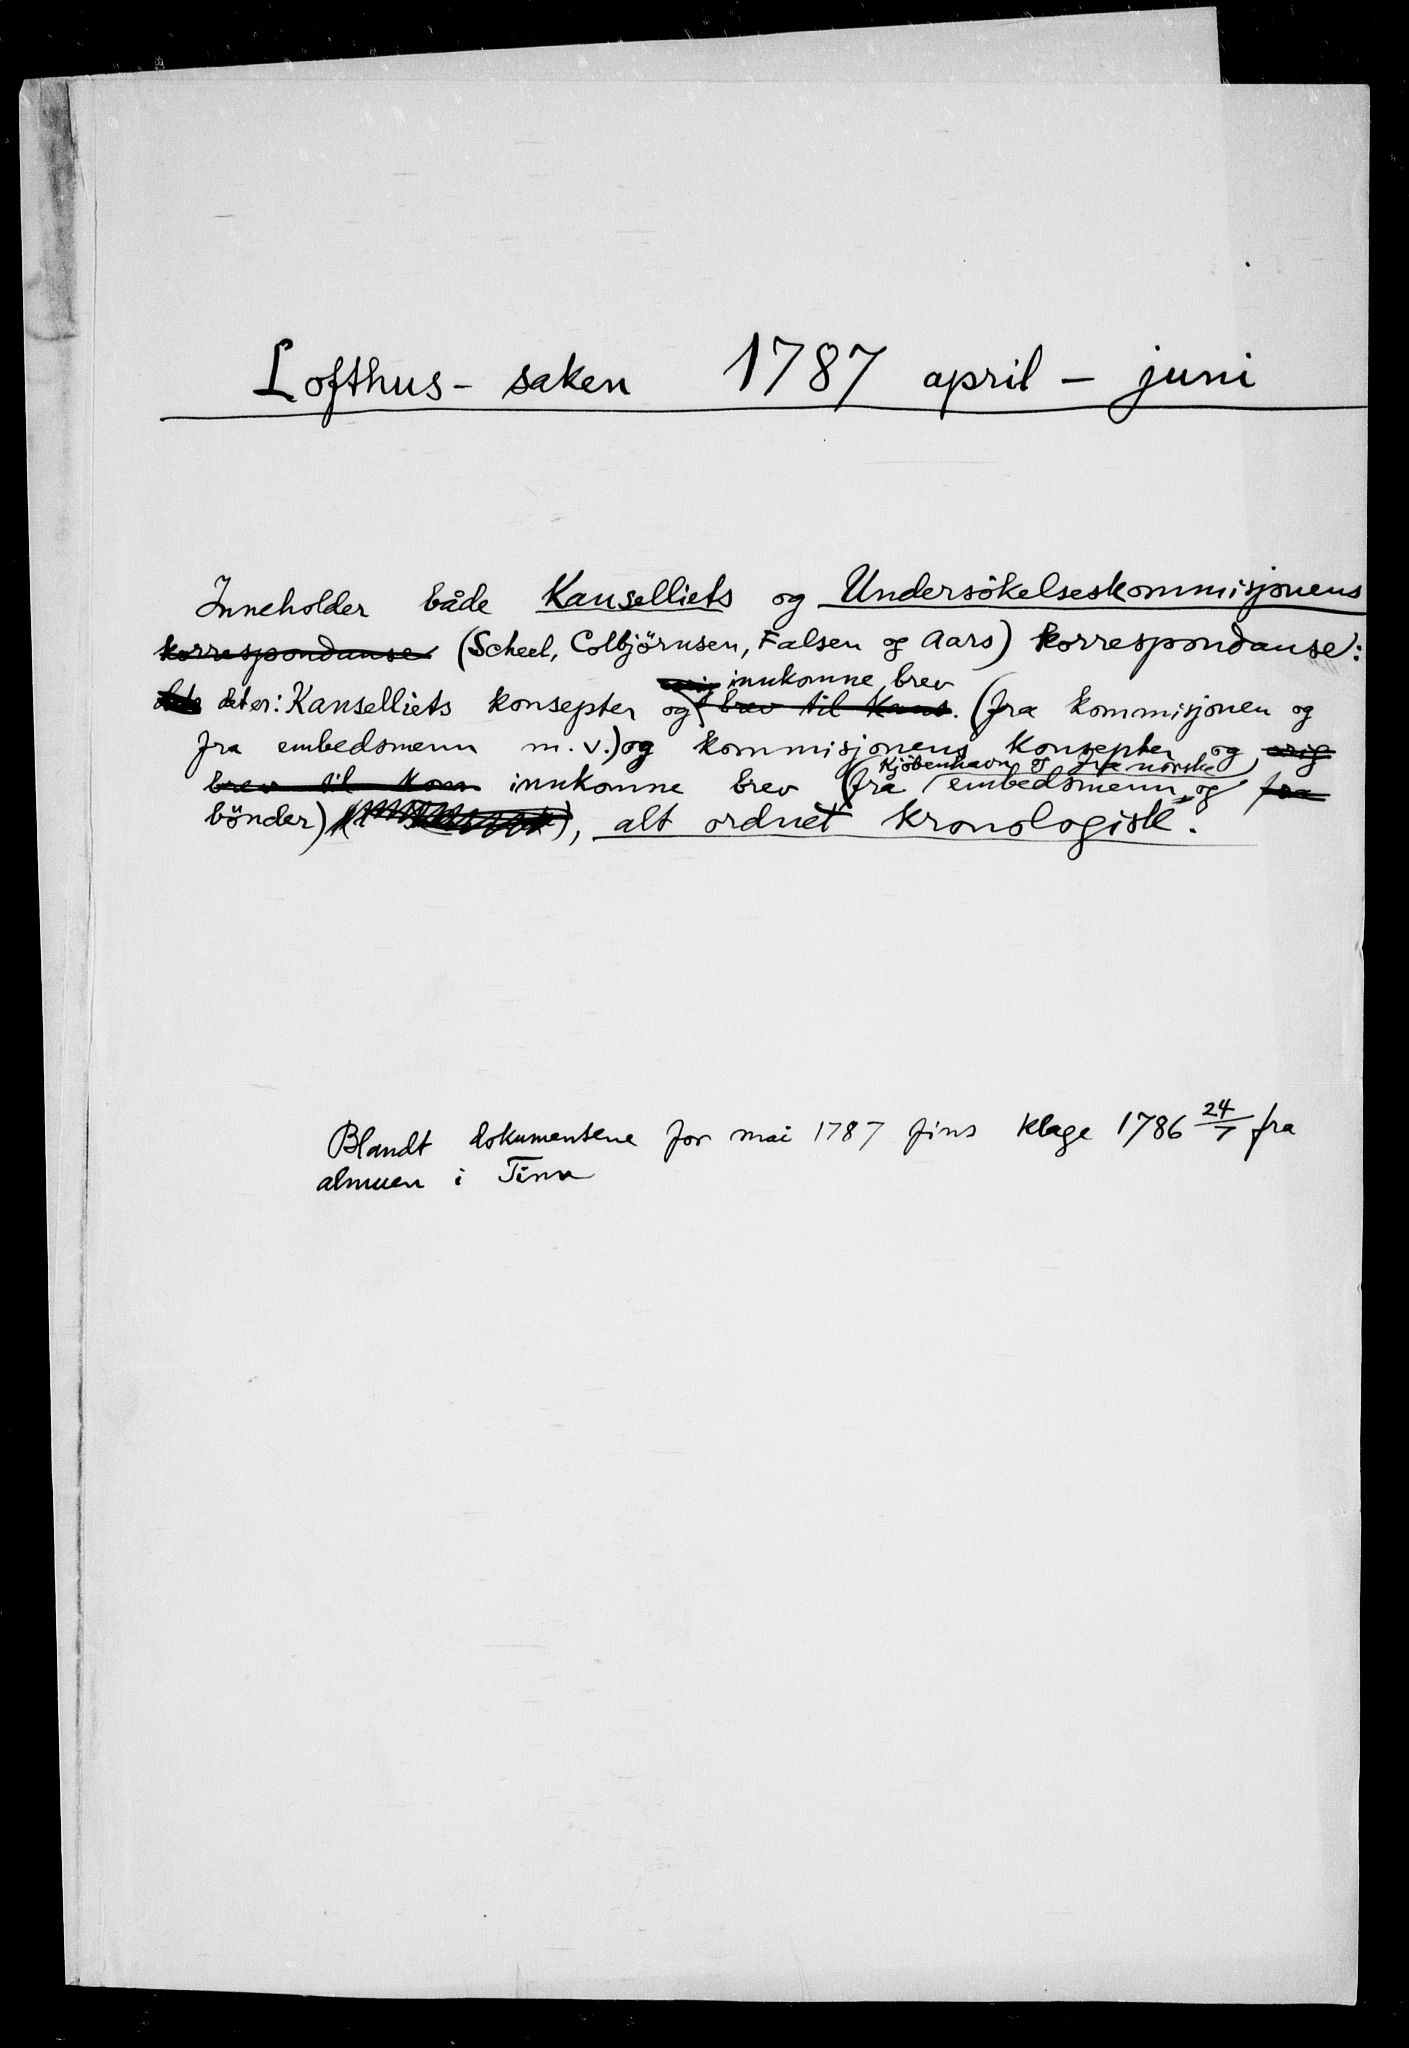 Lofthus - saken 1787 april - juni
Inneholder både Kanselliets og Undersökelseskommisjonens
korrespondanse (Scheel, Colbjörnsen, Falsen og Aars) korrespondanse:
innkomne brev
det er: Kanselliets konsepter og brev til Kans. (fra kommisjonen og
fra embedsmenn m.v.) og kommisjonens konsepter og orig
Kjöbenhavn og fra norske
brev til kom innkomne brev (fra embedsmenn og fra
bönder), alt ordnet kronologisk.
Blandt dokumentene for mai 1787 fins klage 1786 24/7 fra
almuen i Tinn